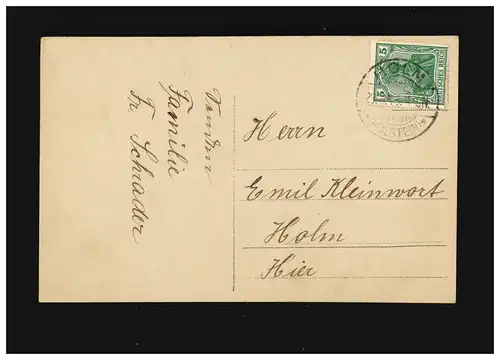 Von der
Familie
Fr. Schrader
Herrn
Emil Kleinwort
Holm
Hier
5
5
DEUTSCHES REICH
HOLM
HOLSTEIN